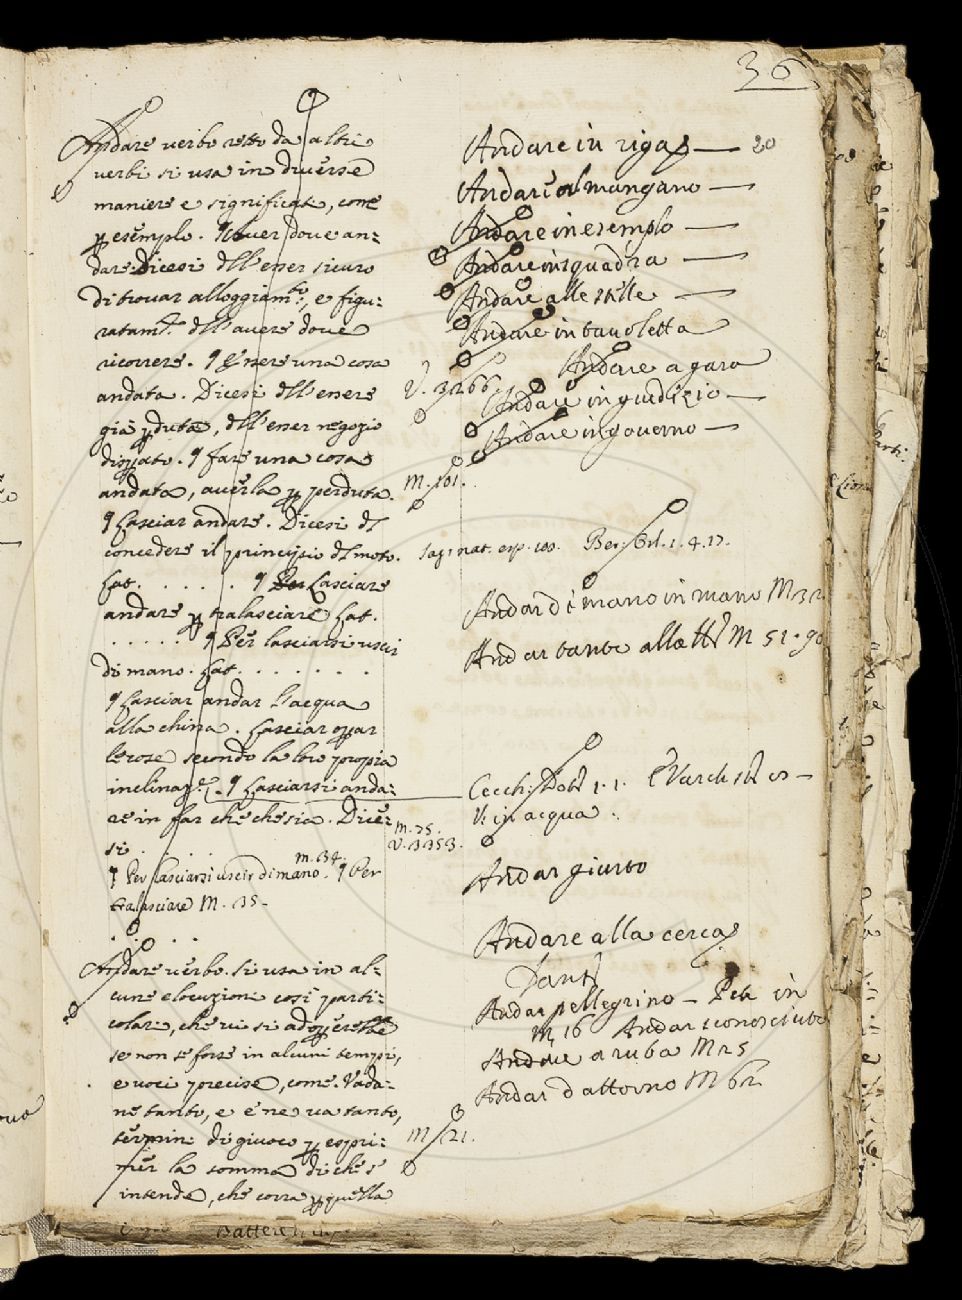 36
Andare verbo retto da altri
verbi si usa in diverse
maniere e significati, come
esemplo. ¶ Aver dove an=
dare. Dicesi dell'esser sicuro
di trovar alloggiam.to, e figu=
ratam.te dell'avere dove
ricorrere. ¶ Essere una cosa
andata. Dicesi dell'essere
già perduta, dell'esser negozio
disperato. ¶ fare una cosa
andata, averla per perduta.
¶ Lasciar andare. Dicesi del
concedere il principio del moto.
Lat. . . . . . ¶ Lasciare
andare per tralasciare Lat.
. . . . . ¶ Per lasciarsi uscir
di mano. Lat. . . . . . .
¶ Lasciar andar l'acqua
alla china. Lasciar oppar
le cose secondo la loro propia
inclinaz.e. ¶ Lasciarsi anda=
re in far che che sia. Dice=
si . . .
m. 34.
¶ Per lasciarsi uscir di mano. ¶ Per
tralasciare M. 35.
. . . .
Andare verbo. si usa in al=
cune elocuzioni così parti=
colari, che vi si adopererebbe
se non se forse in alcuni tempi,
e voci precise, come. Vada=
ne tanto, e e' ne va tanto,
termini di giuoco per espri=
mer la somma di che s'
intende, che corra per quella
Battere
V. 3266.
M. 101.
M. 75.
V. 3353.
M. 21.
Andare in riga — 20
Andare al mangano —
Andare in esemplo —
Andare in squadra —
Andare alle stelle —
Andare in tavoletta
Andare a gara
Andare in giudizio —
Andare in governo —
Sag. nat. esp. 100. Ber. Orl. 1. 4. 17.
Andar di mano in mano M 32
Andar tanto alto M 51. 90
Cecch. Dot. 1. 1. Varch. st.
V. in acqua.
Andar giusto
Andare alla cerca
Dant.
Andar pellegrino — Petr. in
M 16 Andar sconosciuto
Andare a ruba M 25
Andar d'attorno M 62